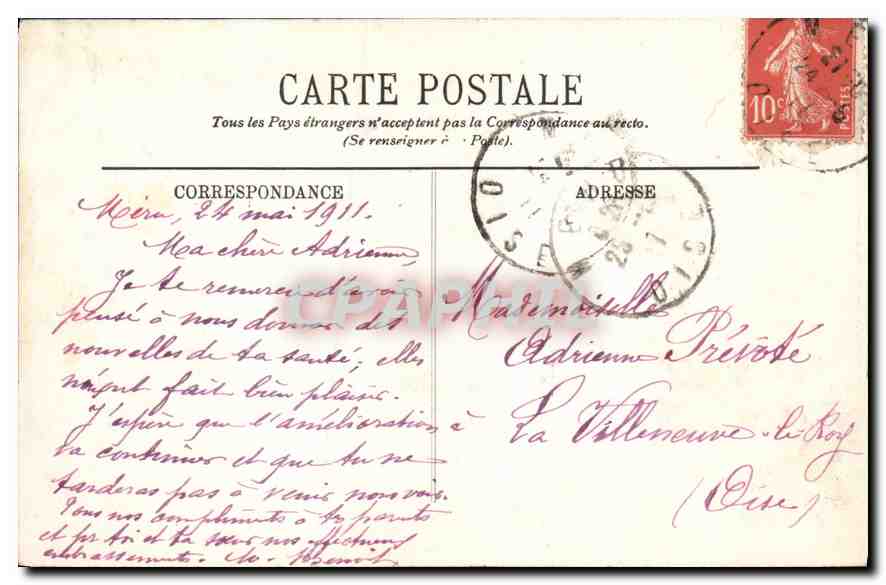 CARTE POSTALE
Tous les Pays étrangers n'acceptent pas la Correspondance au recto.
(Se renseigner à Poste).
10c
POSTES
CORRESPONDANCE
Méru, 24 mai 1911.
Ma chère Adrienne,
Je te remercie d'avoir
pensé à nous donner des
nouvelles de ta santé; elles
m'ont fait bien plaisir.
J'espère que l'amélioration
va continuer et que tu ne
tarderas pas à venir nous voir.
Tous nos compliments à tes parents
et pr toi et ta sœur nos affectueux
embrassements. Benoit
ADRESSE
Mademoiselle
Adrienne Prévoté
à La Villeneuve-le-Roy
(Oise)
OISE
OISE
CPAPHIL